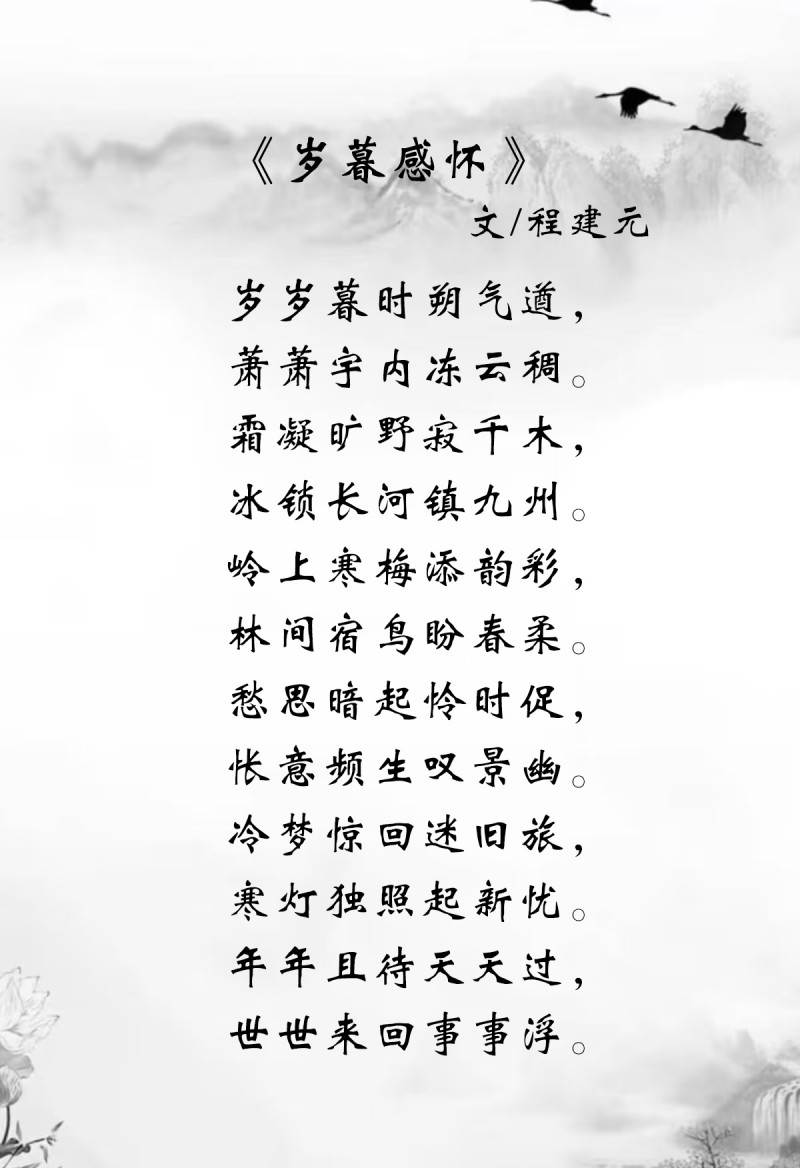 《岁暮感怀》
文/程建元
岁岁暮时朔气遒,
萧萧宇内冻云稠。
霜凝旷野寂千木,
冰锁长河镇九州。
岭上寒梅添韵彩,
林间宿鸟盼春柔。
愁思暗起怜时促,
怅意频生叹景幽。
冷梦惊回迷旧旅,
寒灯独照起新忧。
年年且待天天过,
世世来回事事浮。